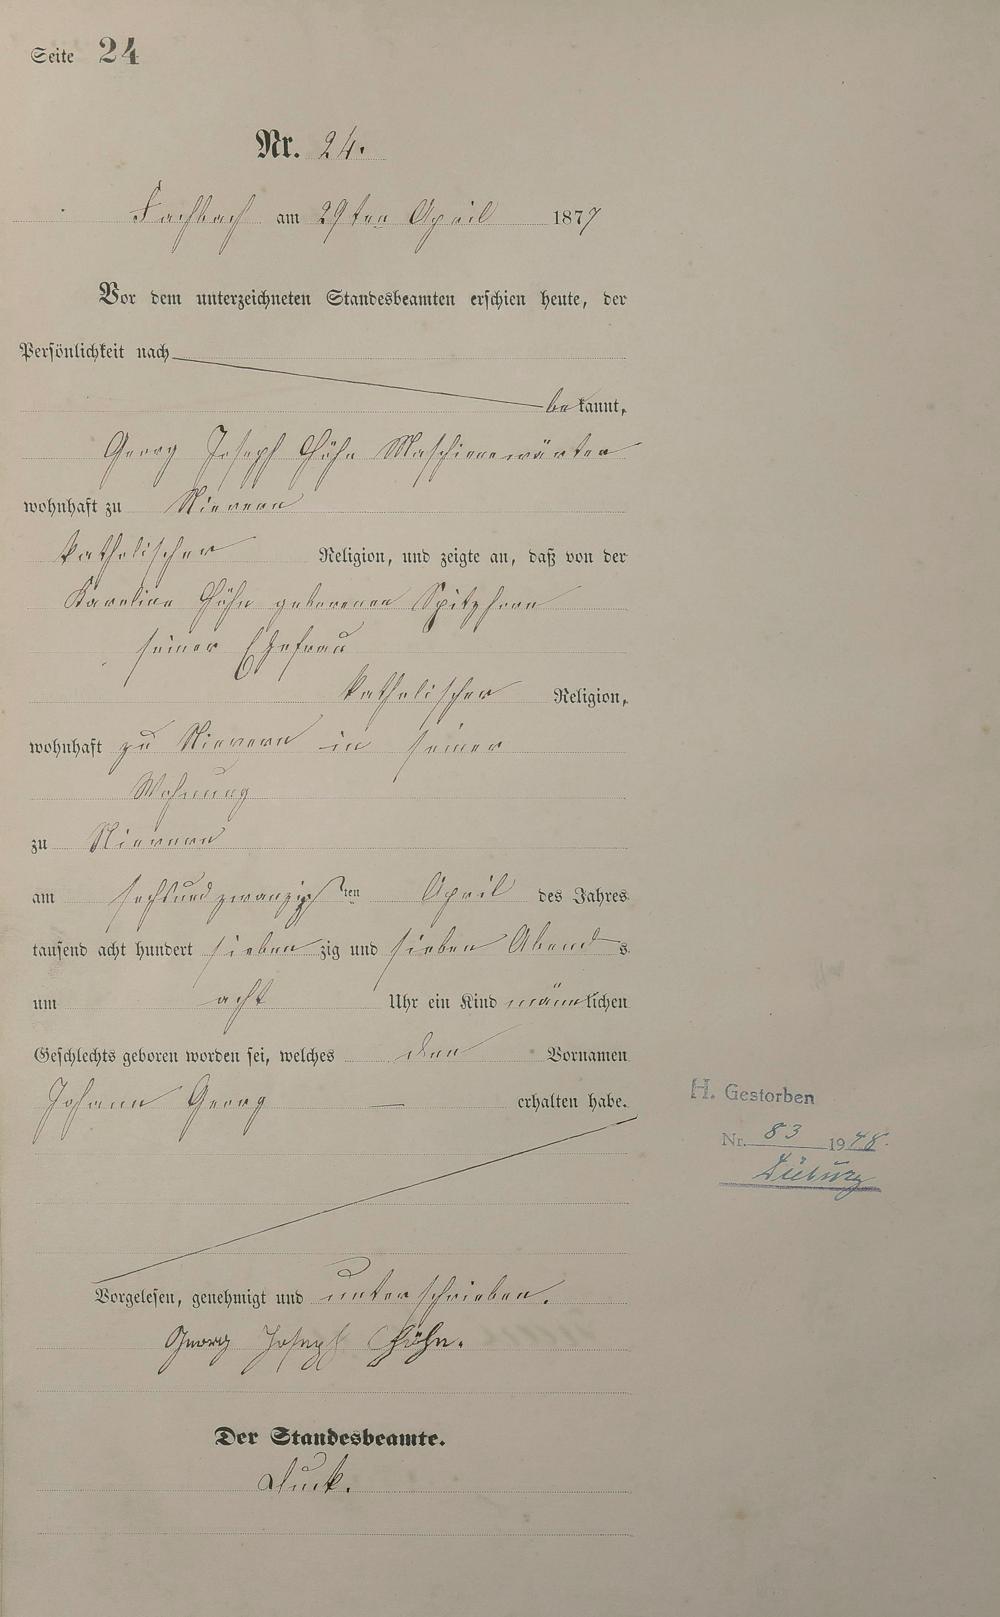 Seite 24
Nr. 24.
Fachbach am 29ten April 1877
Vor dem unterzeichneten Standesbeamten erschien heute, der
Persönlichkeit nach
bekannt,
Georg Joseph Höhn Maschienewärter
wohnhaft zu Nievern
katholischer Religion, und zeigte an, daß von der
Karoline Höhn geborenen Spitzhorn
seiner Ehefrau
katholischer Religion,
wohnhaft zu Nievern in seiner
Wohnung
zu Nievern
am sechsundzwanzigsten April des Jahres
tausend acht hundert siebenzig und sieben Abends
um acht Uhr ein Kind männlichen
Geschlechts geboren worden sei, welches den Vornamen
Johann Georg — erhalten habe.
H. Gestorben
Nr. 83 1948.
Vorgelesen, genehmigt und unterschrieben.
Georg Joseph Höhn.
Der Standesbeamte.